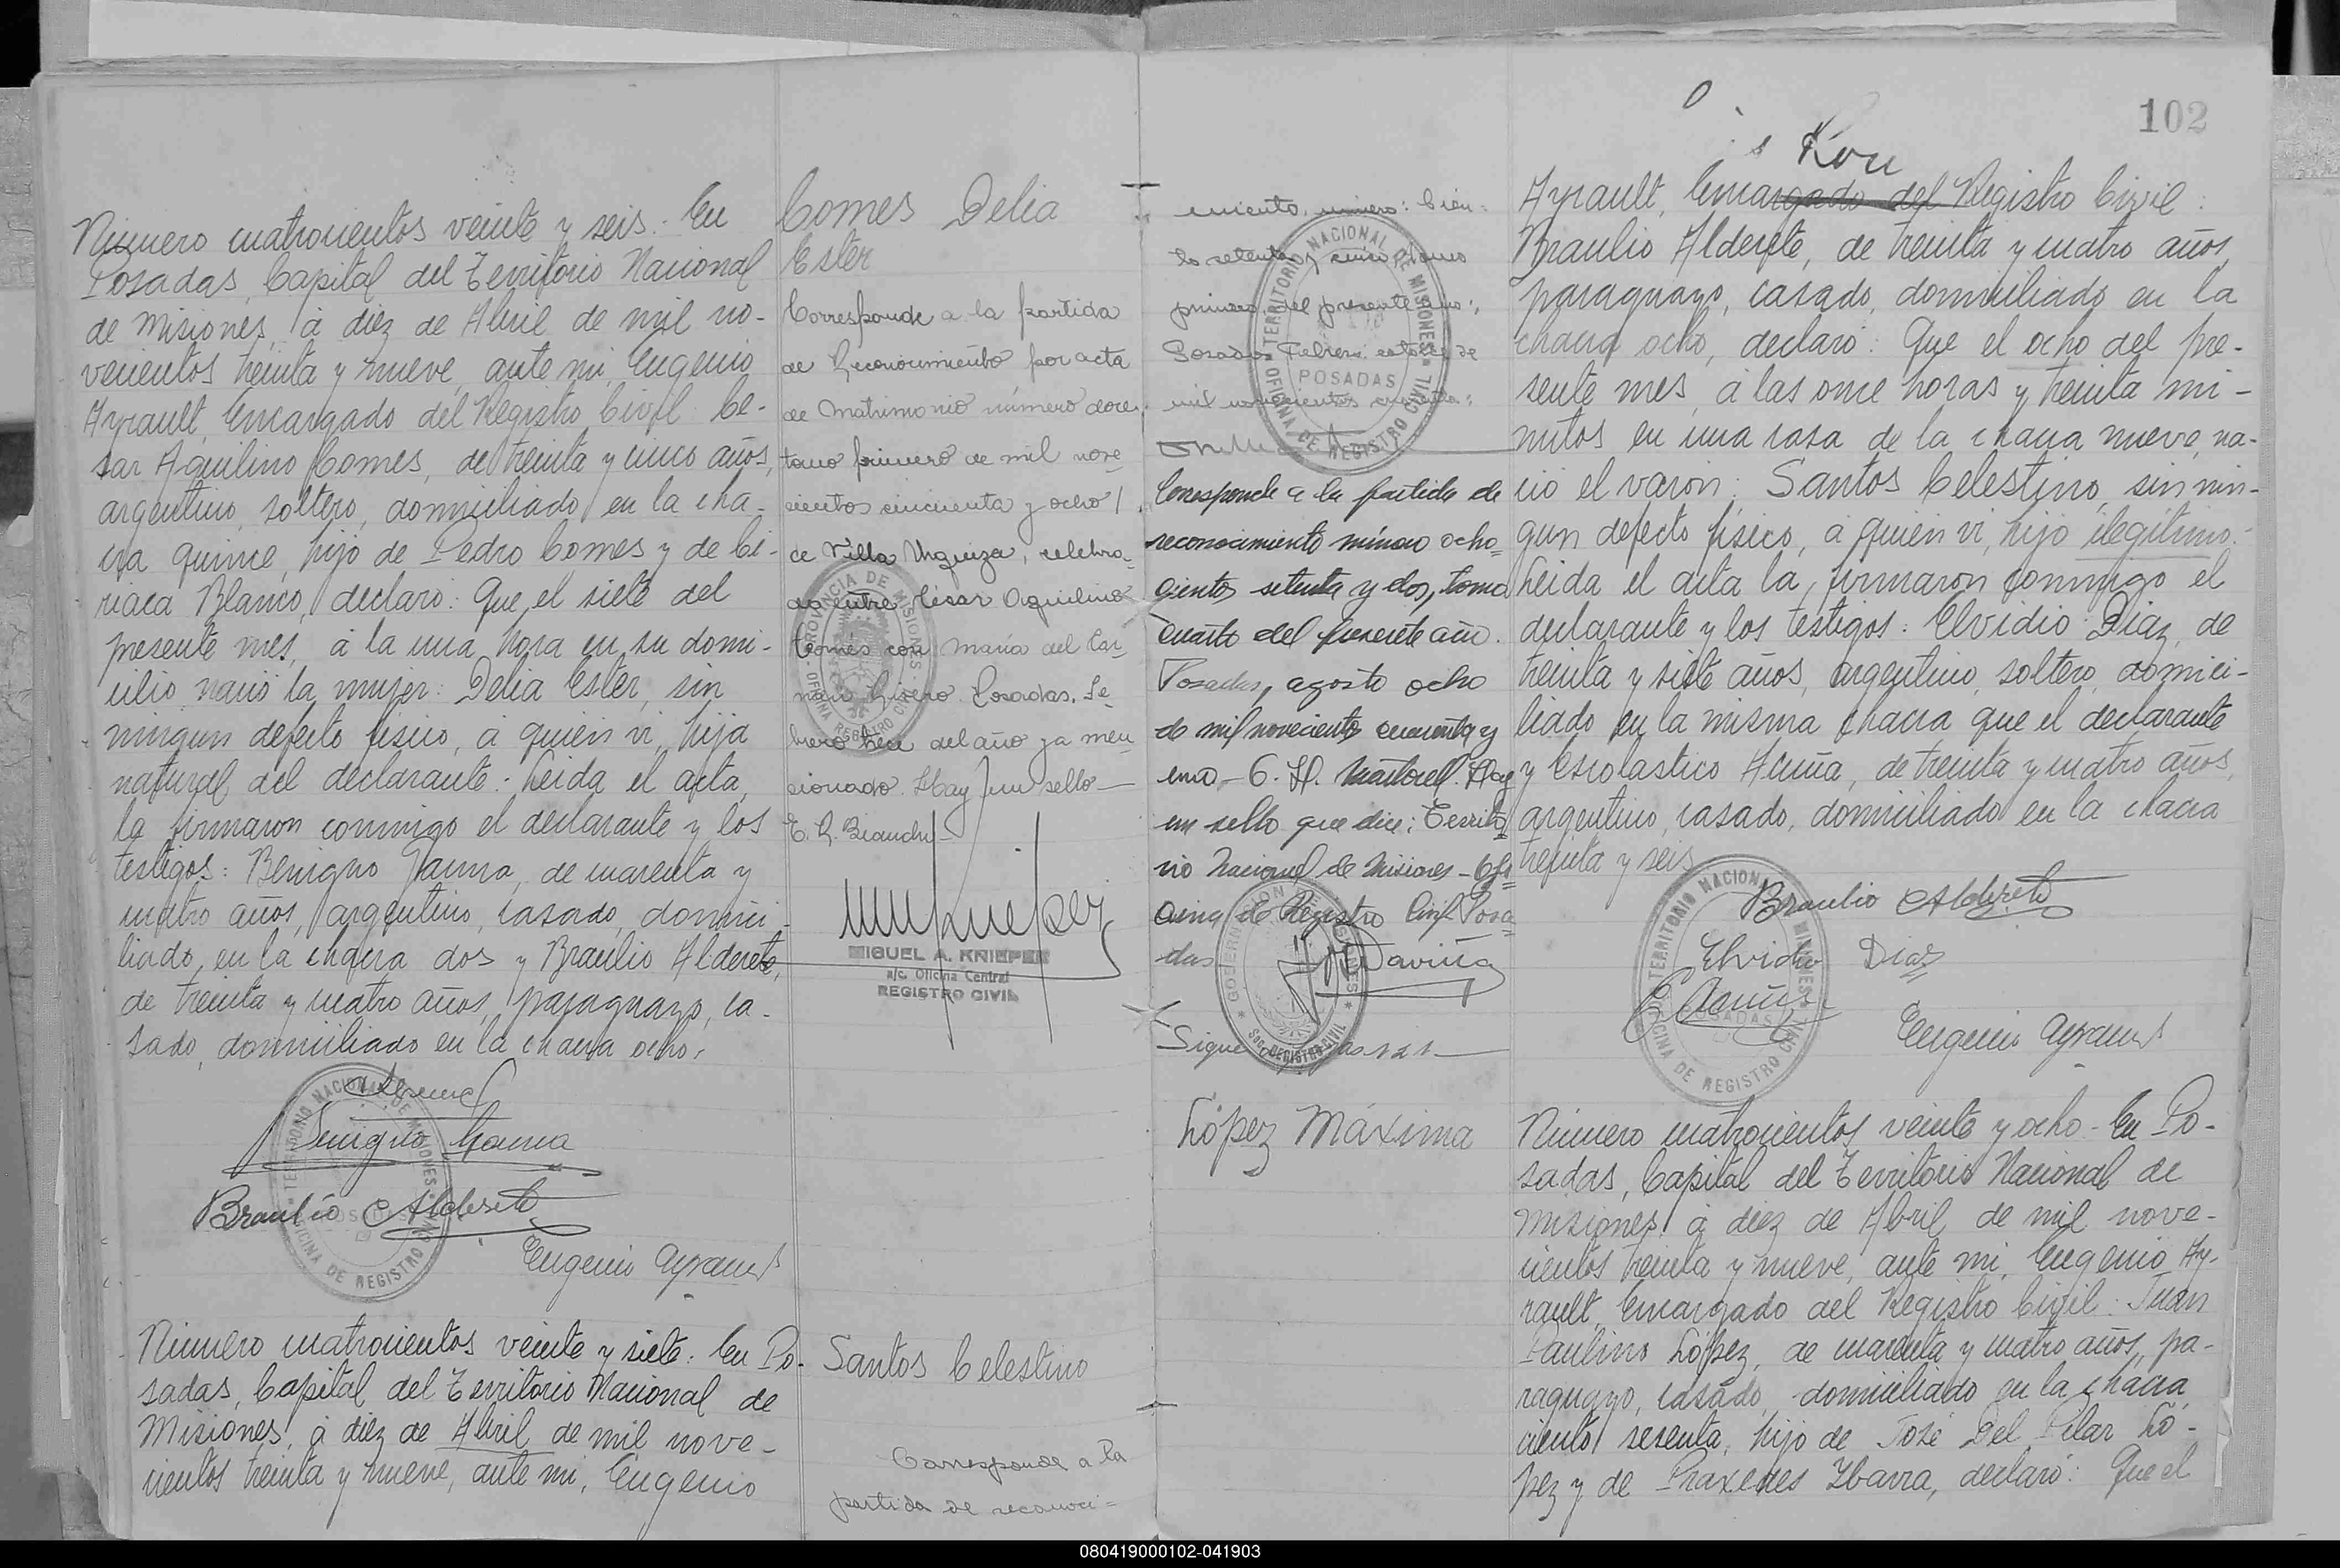 Número cuatrocientos veinte y seis. En
Posadas, Capital del Territorio Nacional
de Misiones, á diez de Abril de mil no-
vecientos treinta y nueve, ante mi, Eugenio
Ayrault, Encargado del Registro Civil: Ce-
sar Aquilino Comes, de treinta y cinco años,
argentino, soltero, domiciliado en la cha-
cra quince, hijo de Pedro Comes y de Ci-
riaca Blanco, declaró: Que, el siete del
presente mes, á la una hora en su domi-
cilio nació la mujer: Delia Ester, sin
ningun defecto físico, á quién vi, hija
natural del declarante. Leida el acta,
la firmaron conmigo el declarante y los
testigos: Benigno Gauna, de cuarenta y
cuatro años, argentino, casado, domici-
liado, en la chacra dos y Braulio Alderete,
de treinta y cuatro años, paraguayo, ca-
sado, domiciliado en la chacra ocho.
Benigno Gauna
Braulio Alderete
Eugenio Ayrault
TERRITORIO NACIONAL DE MISIONES
OFICINA DE REGISTRO CIVIL
POSADAS
Número cuatrocientos veinte y siete: En Po-
sadas, Capital del Territorio Nacional de
Misiones, á diez de Abril de mil nove-
cientos treinta y nueve, ante mi, Eugenio
Comes Delia
Ester
Corresponde a la partida
de Reconocimiento por acta
de Matrimonio número doce,
tomo primero de mil nove-
cientos cincuenta y ocho
de Villa Urquiza, celebra-
do entre César Aquilino
Comes con María del Car-
men Rivero. Posadas, Fe-
brero trece del año ya men-
cionado. Hay un sello
E. R. Bianchi
PROVINCIA DE MISIONES
MIGUEL A. KNIEPER
a/c. Oficina Central
REGISTRO CIVIL
Santos Celestino
Corresponde a la
partida de reconoci=
miento, número: Cien=
to setenta y cinco, tomo
primero del presente año:
Posadas Febrero catorce de
mil novecientos cuarenta:
TERRITORIO NACIONAL DE MISIONES
POSADAS
OFICINA DE REGISTRO CIVIL
Corresponde a la partida de
reconocimiento número ocho=
cientos setenta y dos, tomo
cuarto del presente año.
Posadas, agosto ocho
de mil novecientos cuarenta y
uno - C. H. Martorell. Hay
un sello que dice: Territo
rio Nacional de Misiones - Ofi
cina de Registro Civil Posa
das
REGISTRO CIVIL
Sigue
López Máxima
102
Ayrault, Encargado del Registro Civil:
Braulio Alderete, de treinta y cuatro años,
paraguayo, casado, domiciliado en la
chacra ocho, declaró: Que el ocho del pre-
sente mes, á las once horas y treinta mi-
nutos en una casa de la chacra nueve, na-
ció el varón: Santos Celestino, sin nin-
gun defecto físico, á quién vi, hijo ilegítimo.
Leida el acta la, firmaron conmigo el
declarante y los testigos: Elvidio Diaz, de
treinta y siete años, argentino, soltero, domici-
liado en la misma chacra que el declarante
y Escolastico Acuña, de treinta y cuatro años,
argentino, casado, domiciliado en la chacra
treinta y seis
Braulio Alderete
Elvidio Diaz
E Acuña
Eugenio Ayrault
TERRITORIO NACIONAL DE MISIONES
POSADAS
OFICINA DE REGISTRO CIVIL
Número cuatrocientos veinte y ocho - En Po-
sadas, Capital del Territorio Nacional de
Misiones, á diez de Abril, de mil nove-
cientos treinta y nueve, ante mi, Eugenio Ay-
rault, Encargado del Registro Civil: Juan
Paulino López, de cuarenta y cuatro años, pa-
raguayo, casado, domiciliado en la chacra
ciento sesenta, hijo de José Del Pilar Ló-
pez y de Praxedes Ybarra, declaró: Que el
080419000102-041903